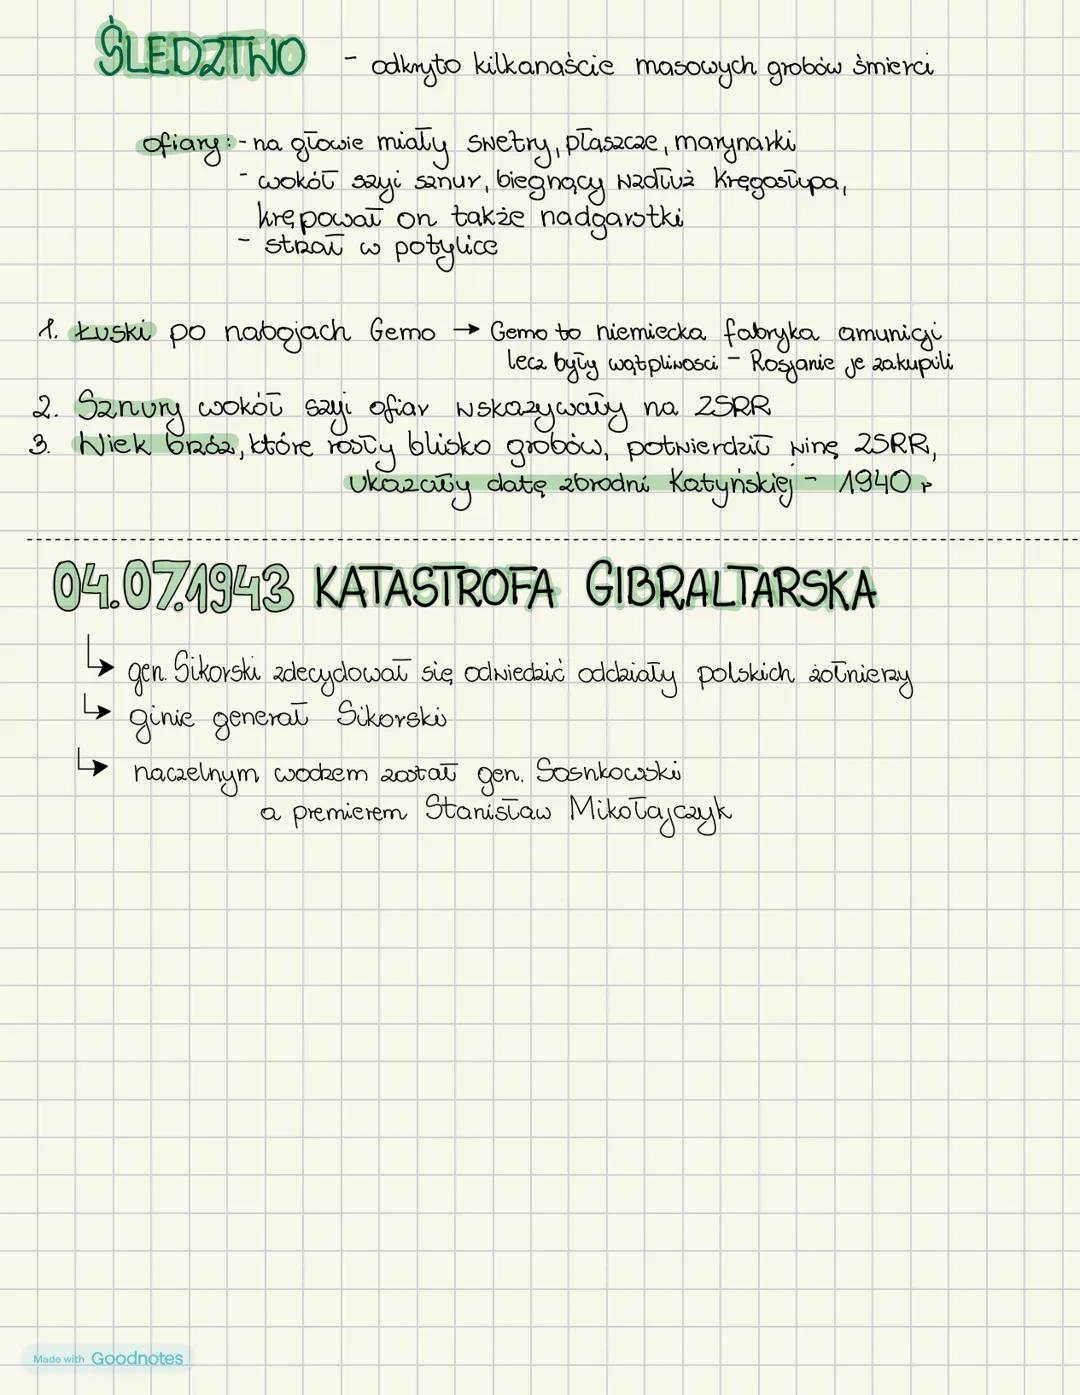 ŚLEDZTWO - odkryto kilkanaście masowych grobów śmierci
ofiary: - na głowie miały swetry, płaszcze, marynarki
- wokół szyi sznur, biegnący wzdłuż kręgosłupa,
krępował on także nadgarstki
- strzał w potylice
1. Łuski po nabojach Gemo → Gemo to niemiecka fabryka amunicji
lecz były wątpliwosci - Rosjanie je zakupili
2. Sznury wokół szyi ofiar wskazywały na ZSRR
3. Wiek brzóz, które rosły blisko grobów, potwierdził winę ZSRR,
ukazały datę zbrodni Katyńskiej - 1940 r
04.07.1943 KATASTROFA GIBRALTARSKA
gen. Sikorski zdecydował się odwiedzić oddziały polskich żołnierzy
ginie generał Sikorski
naczelnym wodzem został gen. Sosnkowski
a premierem Stanisław Mikołajczyk
Made with Goodnotes